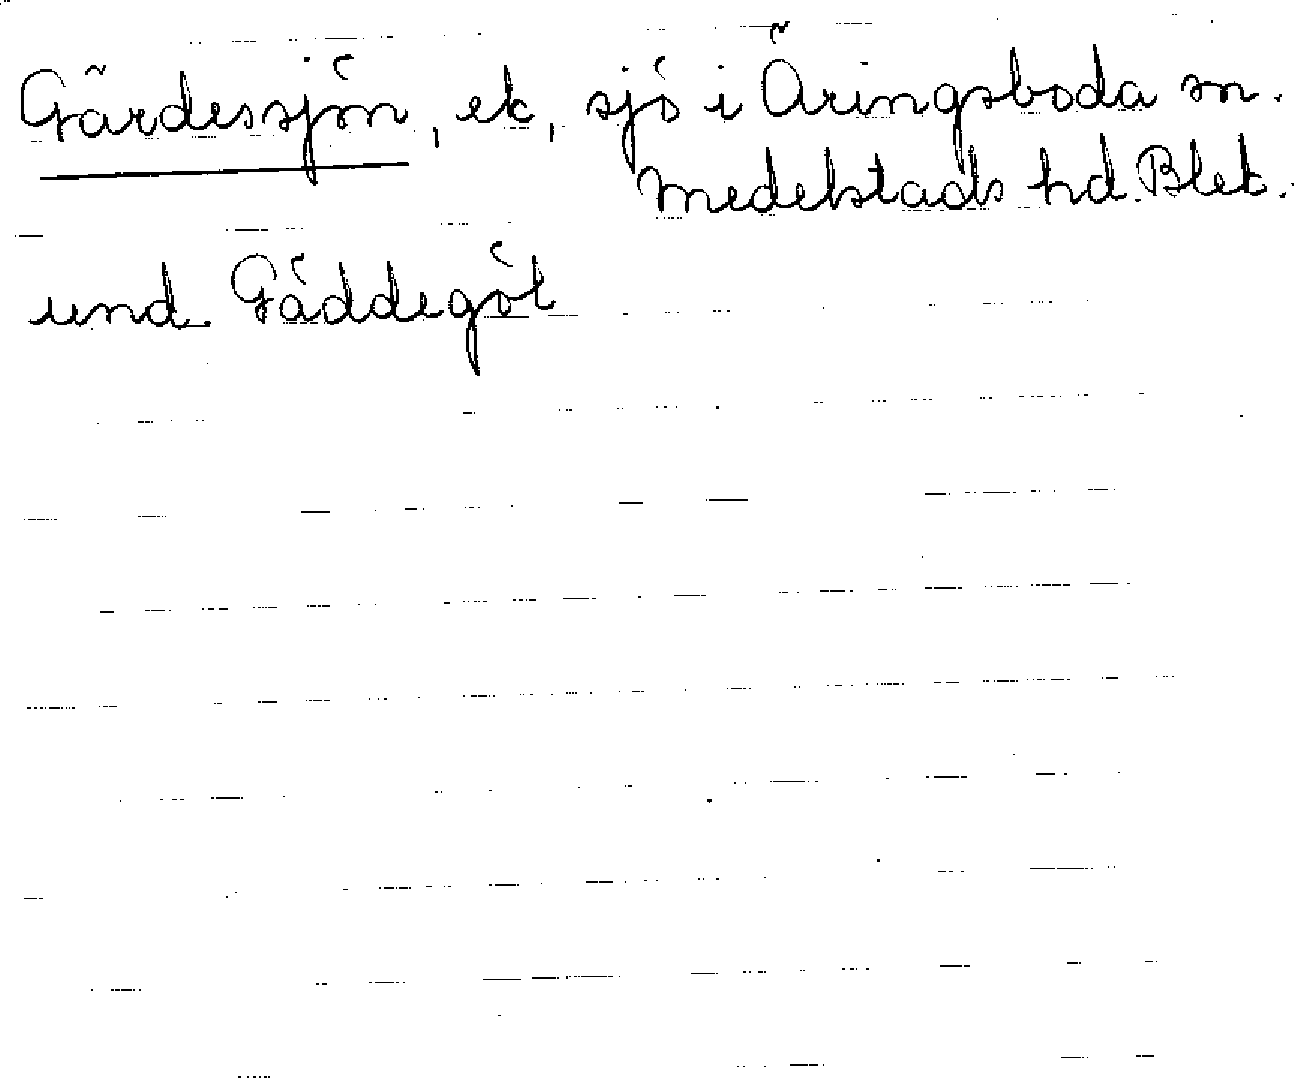 Gärdessjön, ek, sjö i Äringsboda sn.
Medelstads hd. Blek.
und Gäddegöl